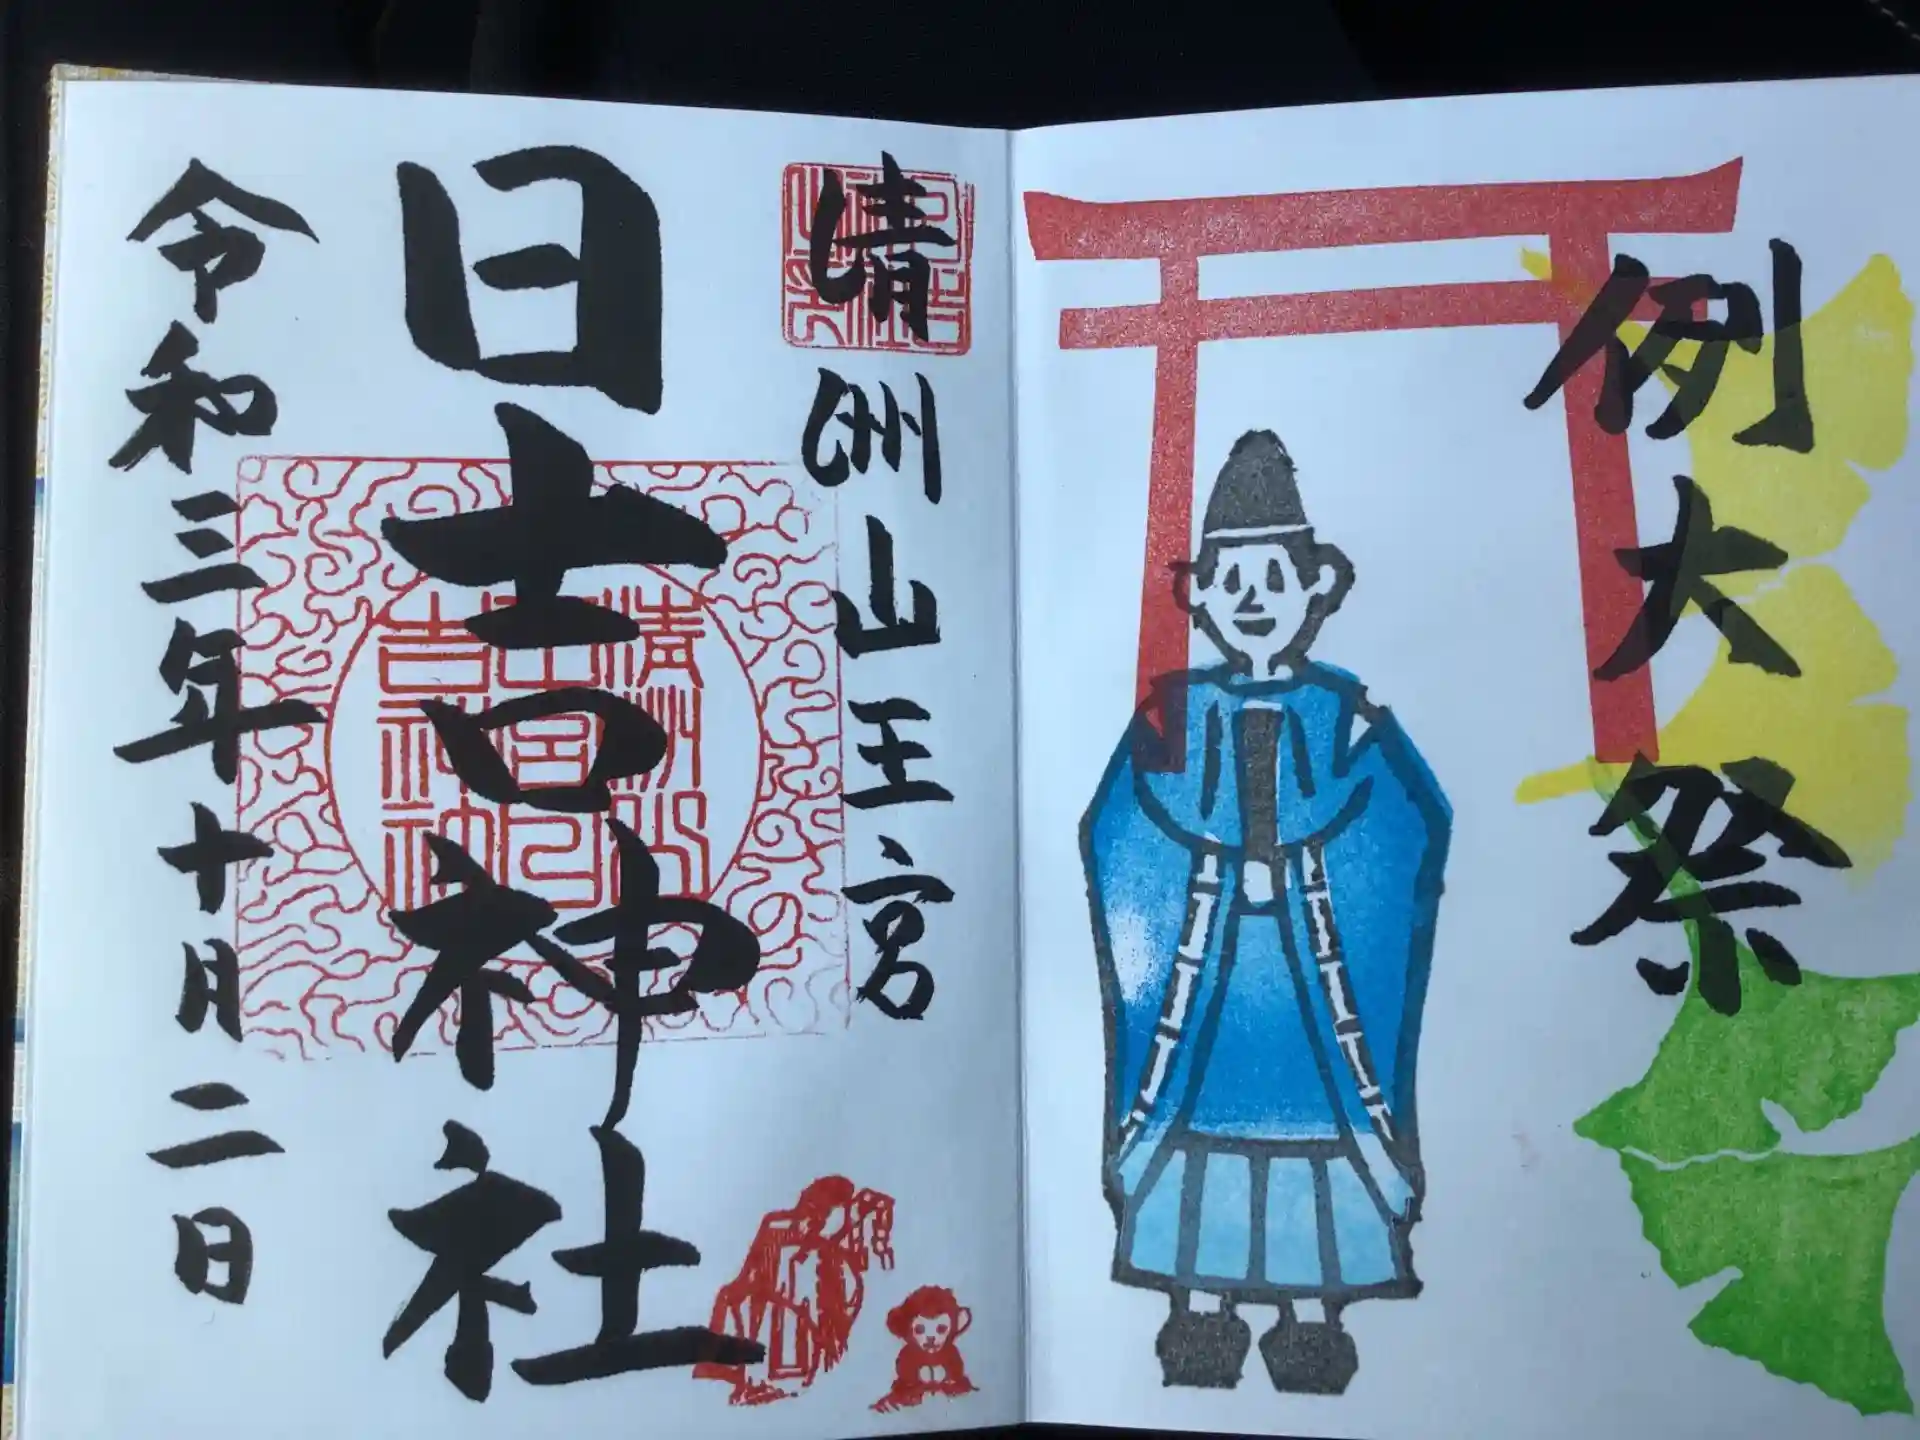 例大祭
清洲山王宮
日吉神社
令和三年十月二日
清洲山
王宮日
吉神社